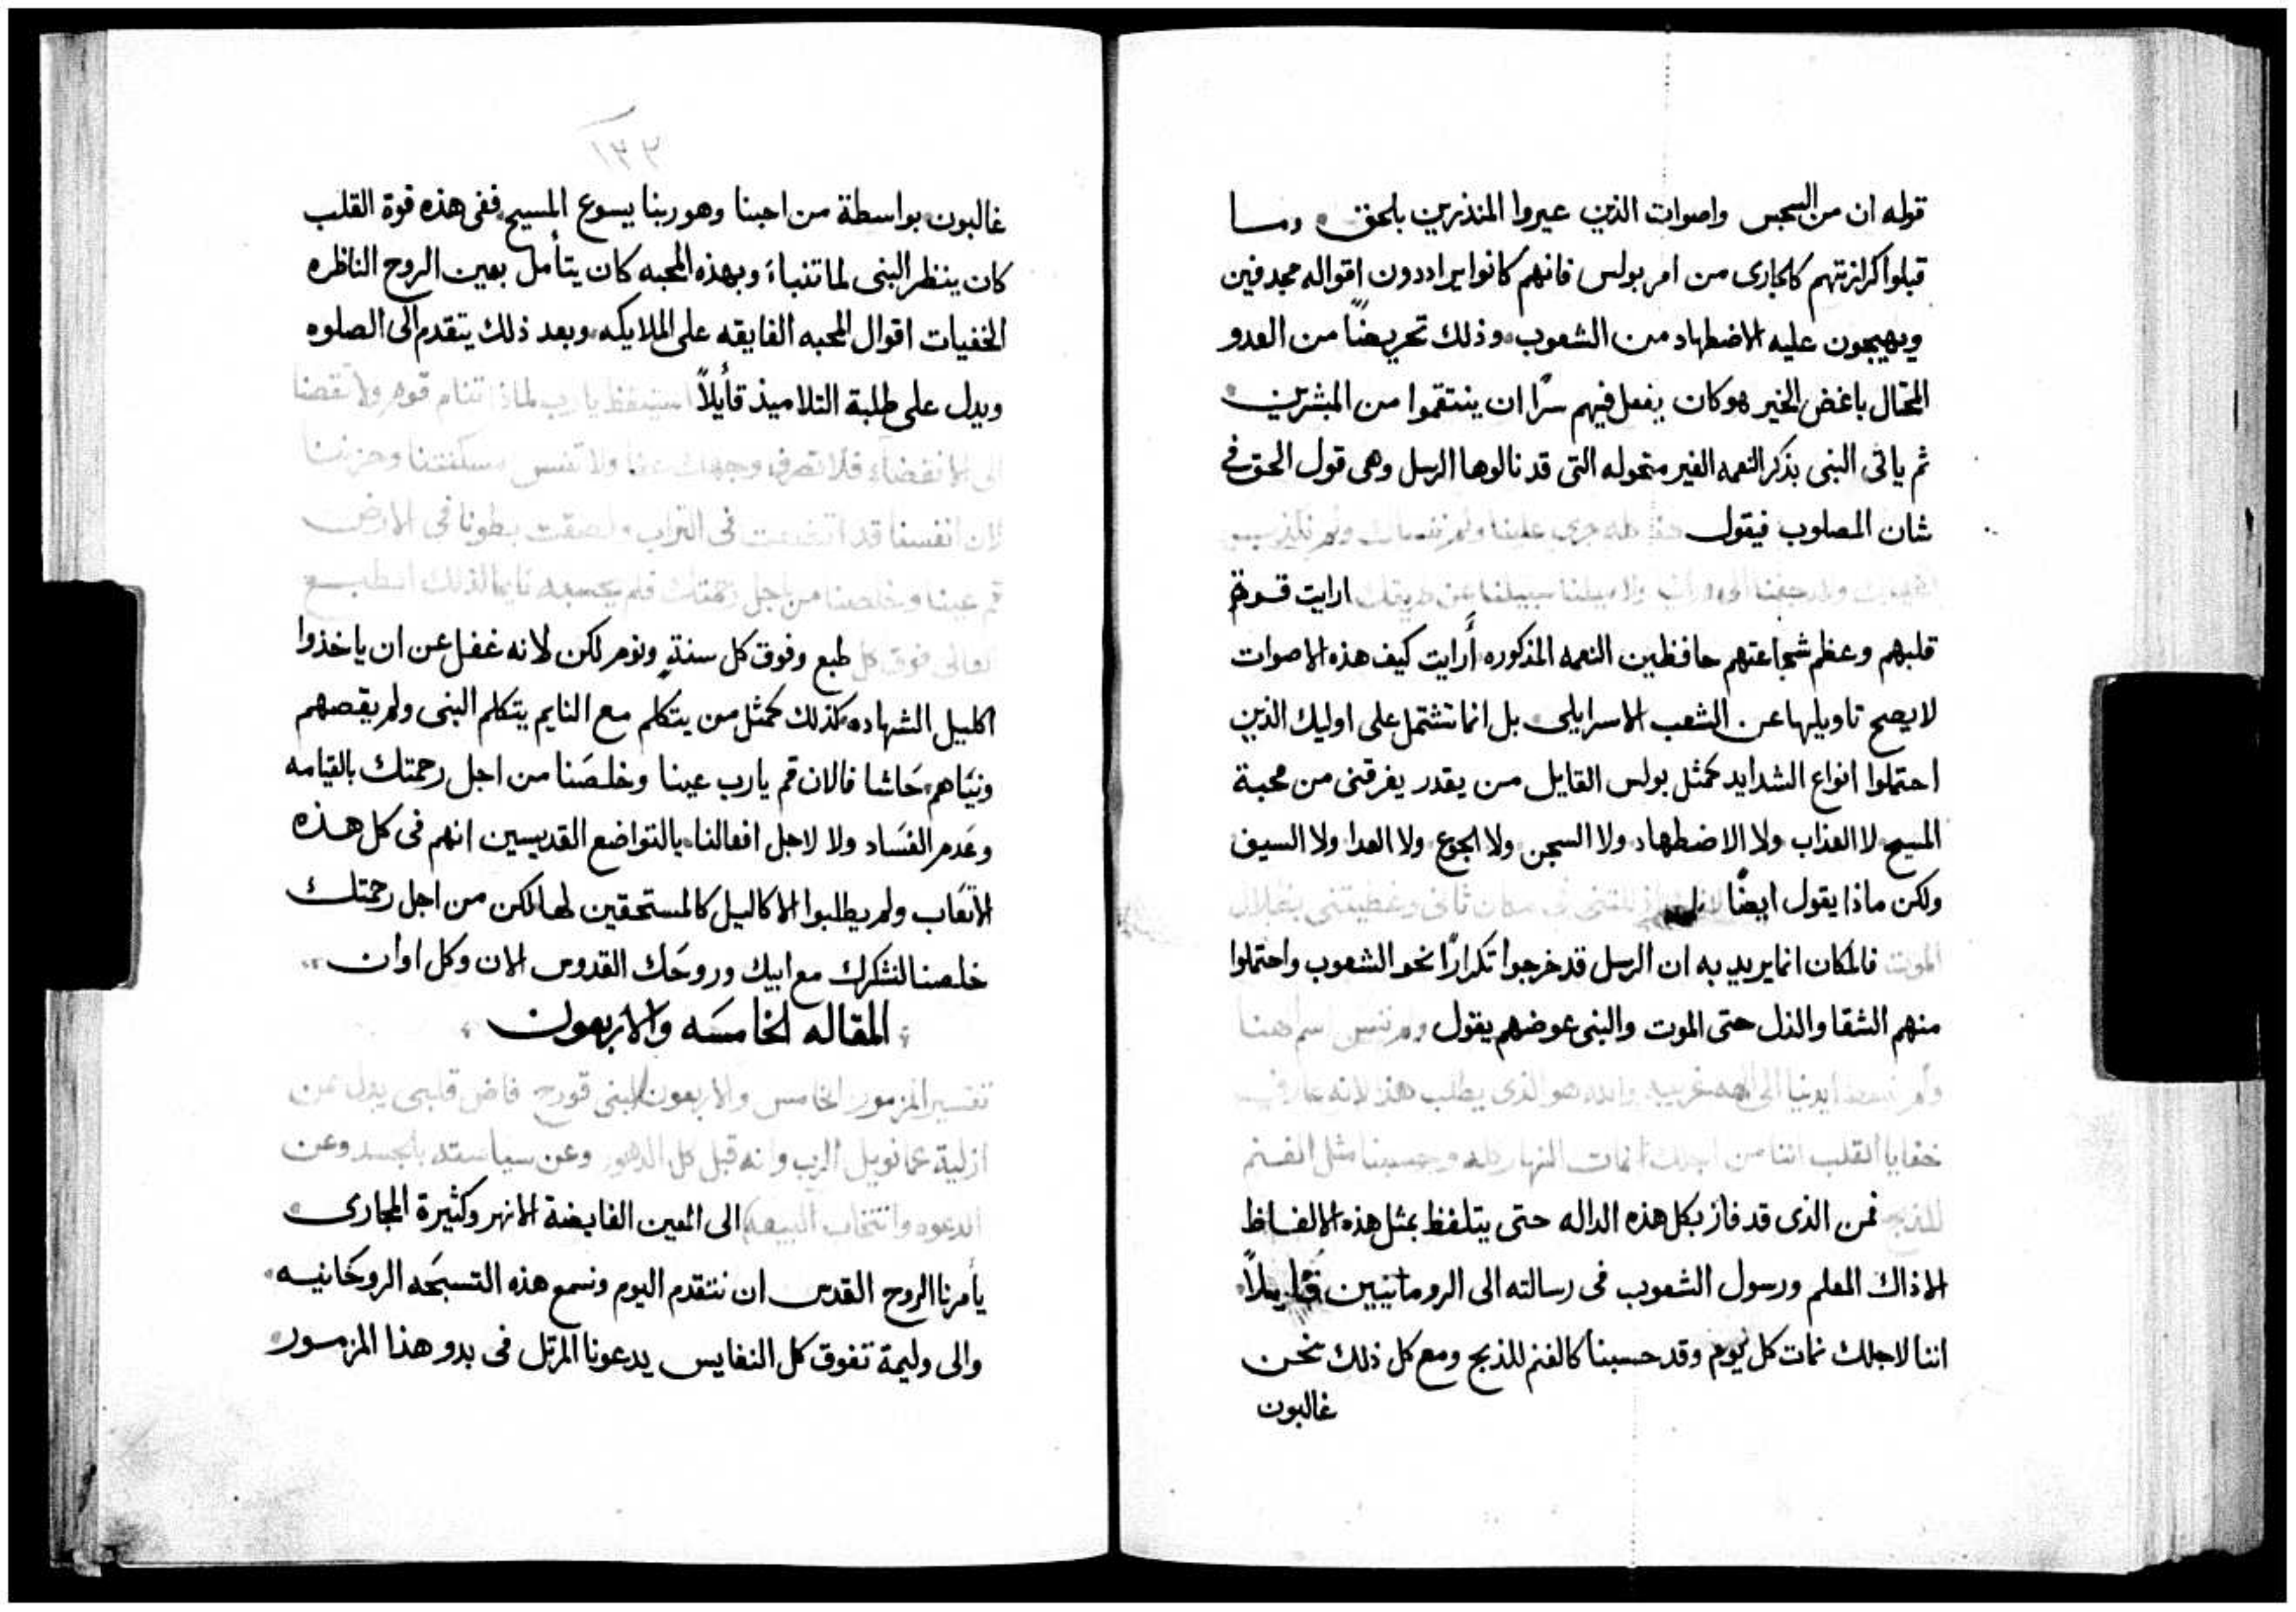 قوله ان من السجس واصوات الذين عيروا المنذرين بالحق وما
قبلوا كرازتهم كالجارى من امر بولس فانهم كانوا يراددون اقواله مجدفين
ويهيجون عليه الاضطهاد من الشعوب وذلك تحريضًا من العدو
المحتال باغض الخير هو كان يفعل فيهم سرًا ان ينتقموا من المبشرين
ثم ياتى النبى بذكر النعمه الغير متحوله التى قد نالوها الرسل وهى قول الحق فى
شان المصلوب فيقول هذا كله جرى علينا ولم ننساك ولم نكذب
ولا ميلنا سبيلنا عن طريقك ارايت قوة
قلبهم وعظم شجاعتهم حافظين النعمه المذكوره أرايت كيف هذه الاصوات
لا يصح تاويلها عن الشعب الاسرايلى بل انما تشتمل على اوليك الذين
احتملوا انواع الشدايد كمثل بولس القايل من يقدر يفرقنى من محبة
المسيح لا العذاب ولا الاضطهاد ولا السجن ولا الجوع ولا العدا ولا السيف
ولكن ماذا يقول ايضًا فى مكان ثانى وغطيتنى بظلال
الموت فالمكان انما يريد به ان الرسل قد خرجوا تكرارًا نحو الشعوب واحتملوا
منهم الشقا والذل حتى الموت والنبى عوضهم يقول ولم ننس اسم الهنا
ولم نبسط ايدينا الى اله غريب والله هو الذى يطلب هذا لانه عارف
خفايا القلب اننا من اجلك نمات النهار كله وحسبنا مثل الغنم
للذبح فمن الذى قد فاز بكل هذه الداله حتى يتلفظ بمثل هذه الالفاظ
الا ذاك المعلم ورسول الشعوب فى رسالته الى الرومانيين قايلاً
اننا لاجلك نمات كل يوم وقد حسبنا كالغنم للذبح ومع كل ذلك نحن
غالبون
١٣٣
غالبون بواسطة من احبنا وهو ربنا يسوع المسيح ففى هذه قوة القلب
كان ينظر النبى لما تنباء وبهذه المحبه كان يتأمل بعين الروح الناظره
الخفيات اقوال المحبه الفايقه على الملايكه وبعد ذلك يتقدم الى الصلوه
ويدل على طلبة التلاميذ قأيلاً استيقظ يا رب لماذا تنام قوم ولا تقصنا
الى الانقضاء فلا تصرف وجهك عنا ولا تنس مسكنتنا وحزننا
لان انفسنا قد اتضعت فى التراب ولصقت بطوننا فى الارض
قم عينا وخلصنا من اجل رحمتك فلم يحسبه نايما لذلك الطبع
العالى فوق كل طبع وفوق كل سنةٍ ونوم لكن لانه غفل عن ان ياخذوا
اكليل الشهاده كذلك كمثل من يتكلم مع النايم يتكلم النبى ولم يقصهم
ونيَاهم حَاشا فالان قم يارب عينا وخلصَنا من اجل رحمتك بالقيامه
وعَدم الفسَاد ولا لاجل افعالنا يالتواضع القديسين انهم فى كل هذه
الاتعَاب ولم يطلبوا الاكاليل كالمستحقين لها لكن من اجل رحمتك
خلصنا لنشكرك مع ابيك وروحَك القدوس الان وكل اوان
المقاله الخامسَه والاربعون
تفسير المزمور الخامس والاربعون لبنى قورح فاض قلبى يدل عن
ازلية عمانويل الرب وانه قبل كل الدهور وعن سياسته بالجسد وعن
الدعوه وانتخاب البيعه الى العين الفايضة الانهر وكثيرة المجارى
يأمرنا الروح القدس ان نتقدم اليوم ونسمع هذه التسبحَه الروحَانيه
والى وليمة تفوق كل النفايس يدعونا المرتل فى بدو هذا المزمور